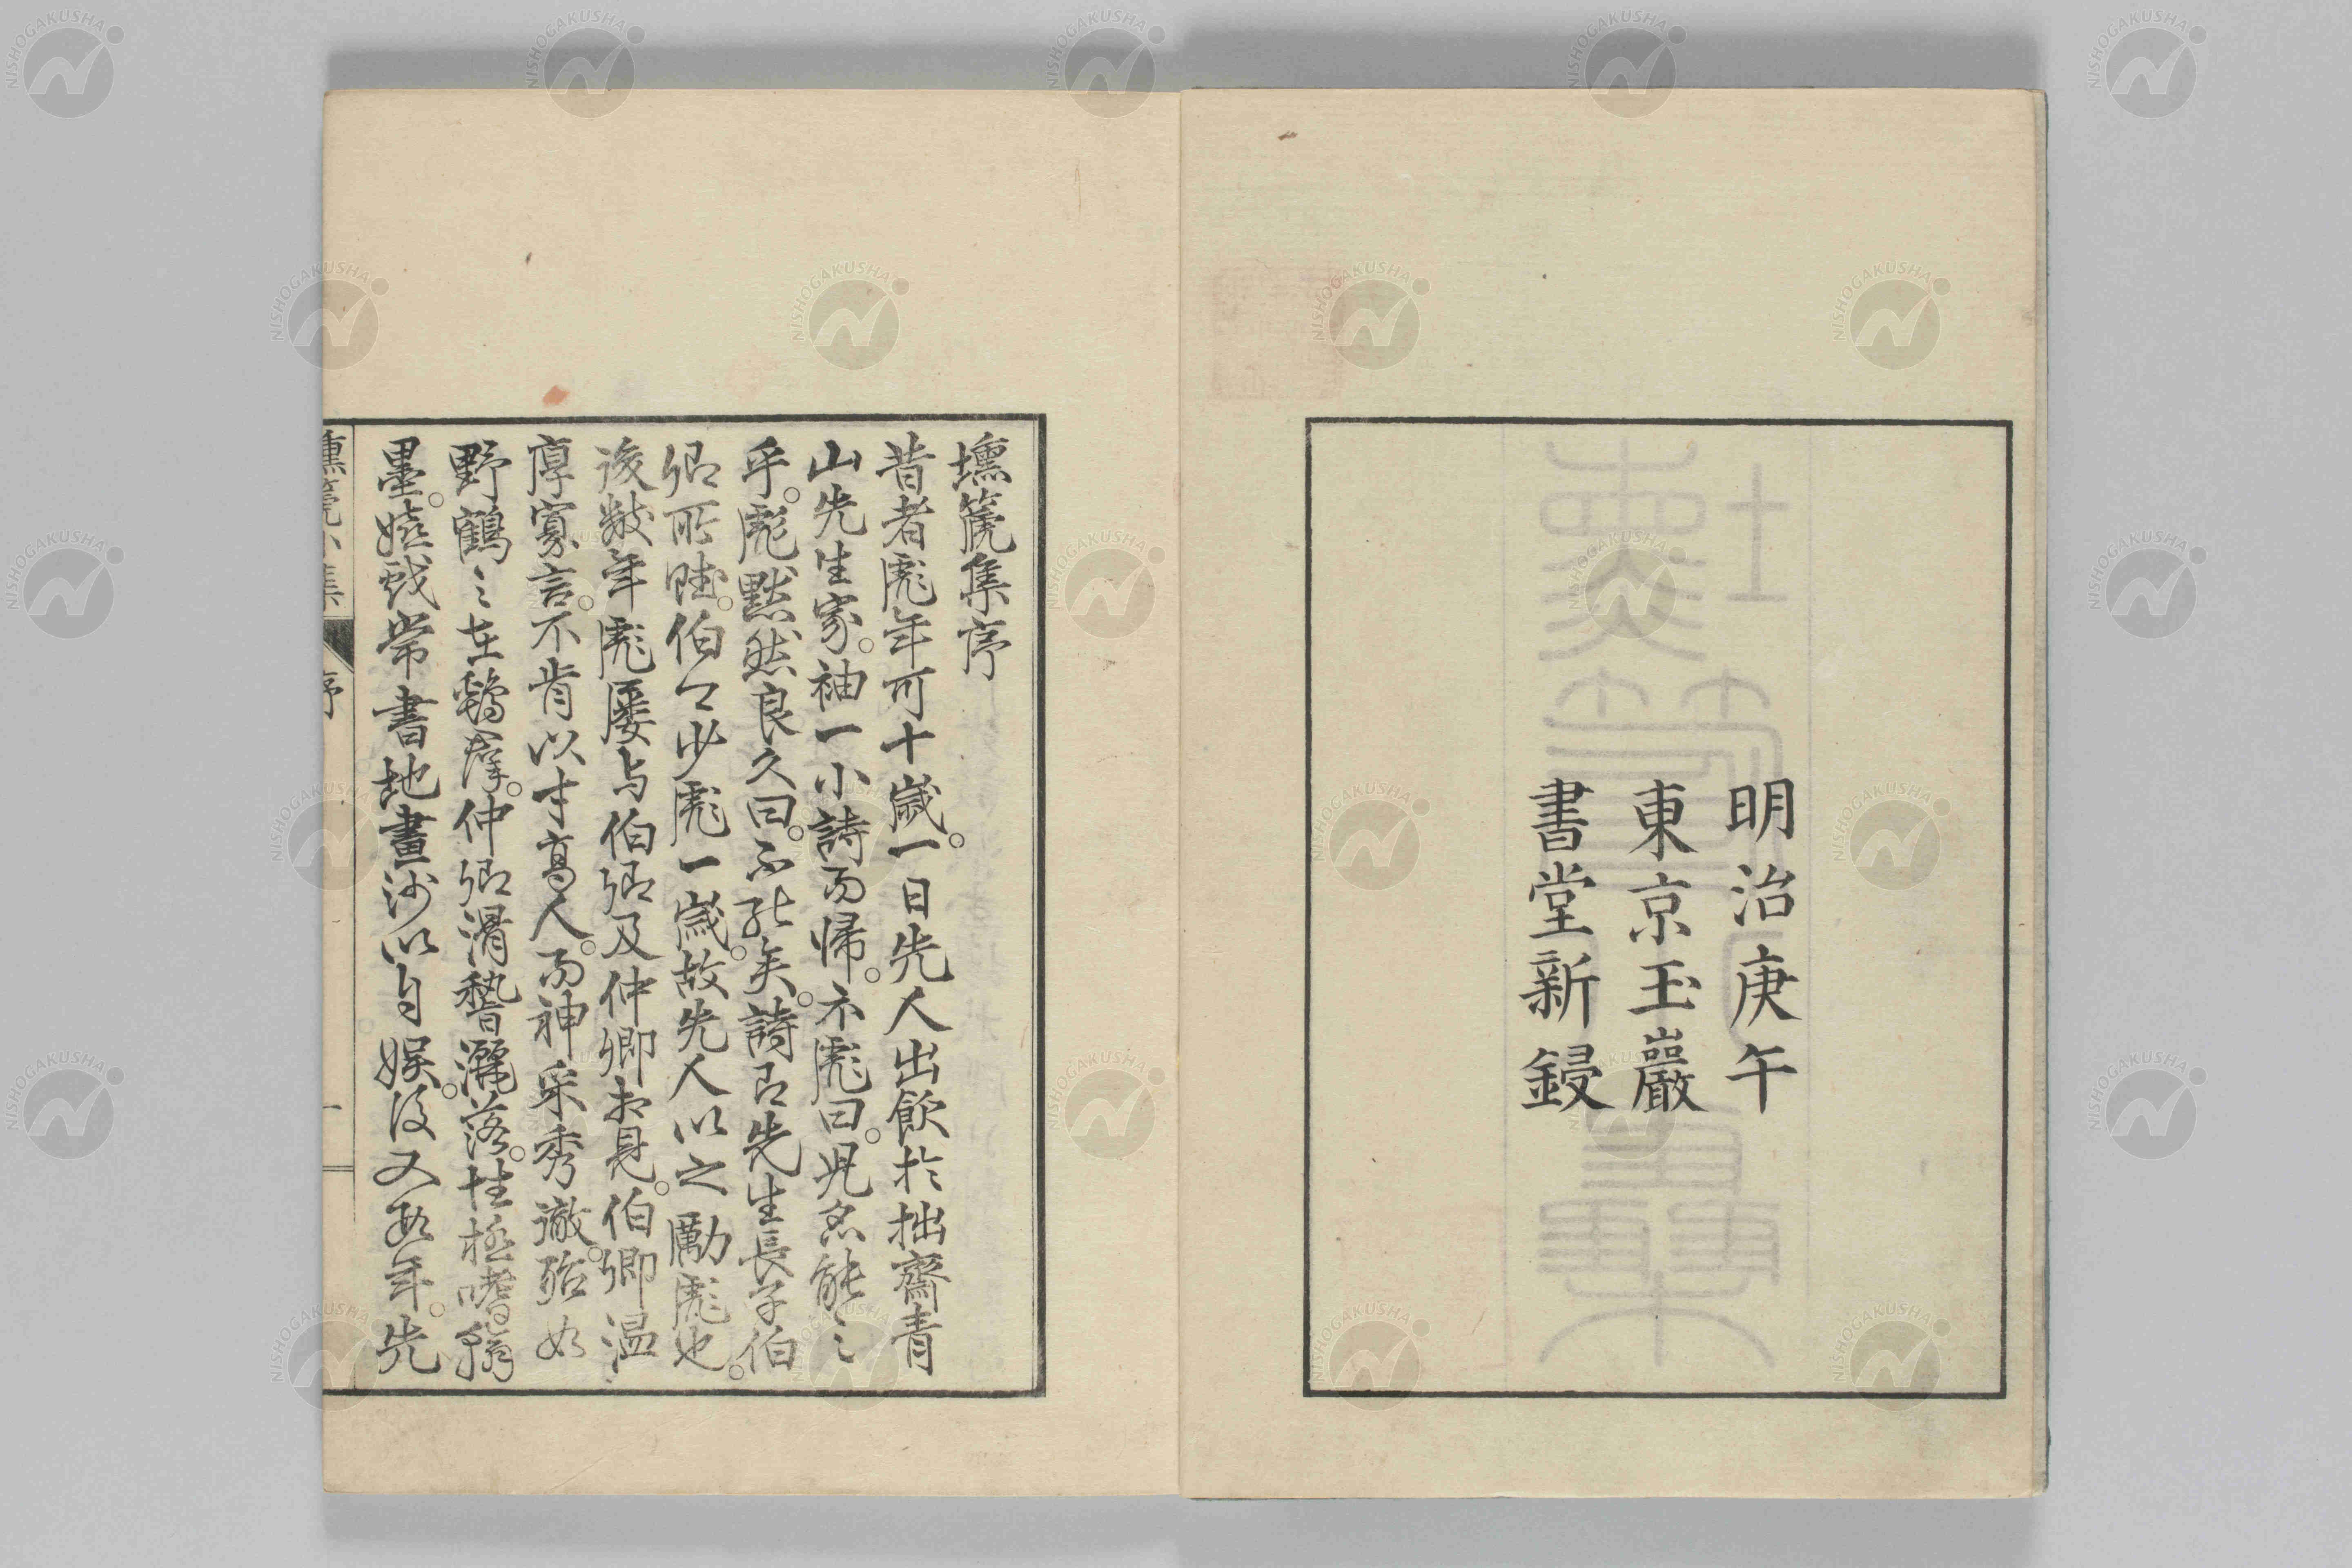 明治庚午
東京玉巖
書堂新鋟
壎篪集序
昔者彪年可十歲。一日先人出飲於拙齋青
山先生家。袖一小詩而帰。示彪曰。児忽能之
乎。彪黙然良久曰。不能矣。詩即先生長子伯
卿所賦。伯卿少彪一歲。故先人以之勵彪也。
後数年彪屢与伯卿及仲卿相見。伯卿温
厚寡言。不肯以才高人。而神采秀徹。殆如
野鶴之在鶏羣。仲卿滑稽灑落。性極嗜翰
墨。嬉戯常書地畫沙以自娯。後又数年。先
壎篪小集
序
一
NISHOGAKUSHA